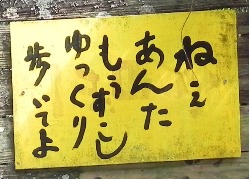 ねぇ
あんた
もうすこし
ゆっくり
歩いてよ